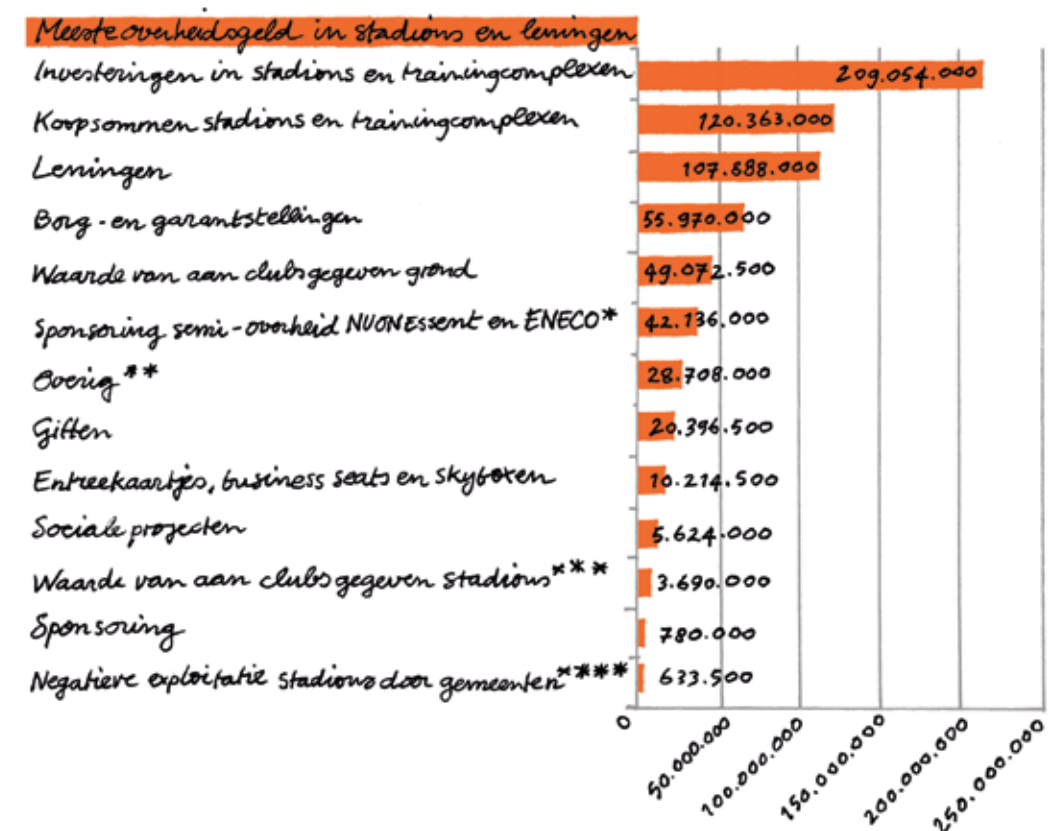 Meeste overheidsgeld in stadions en leningen
Investeringen in stadions en trainingcomplexen 209.054.000
Koopsommen stadions en trainingcomplexen 120.363.000
Leningen 107.688.000
Borg-en garantstellingen 55.970.000
Waarde van aan clubs gegeven grond 49.072.500
Sponsoring semi-overheid NUON Essent en ENECO* 42.136.000
Overig** 28.708.000
Giften 20.396.500
Entreekaartjes, business seats en skyboxen 10.214.500
Sociale projecten 5.624.000
Waarde van aan clubs gegeven stadions*** 3.690.000
Sponsoring 780.000
Negatieve exploitatie stadions door gemeenten**** 633.500
0 50.000.000 100.000.000 150.000.000 200.000.000 250.000.000